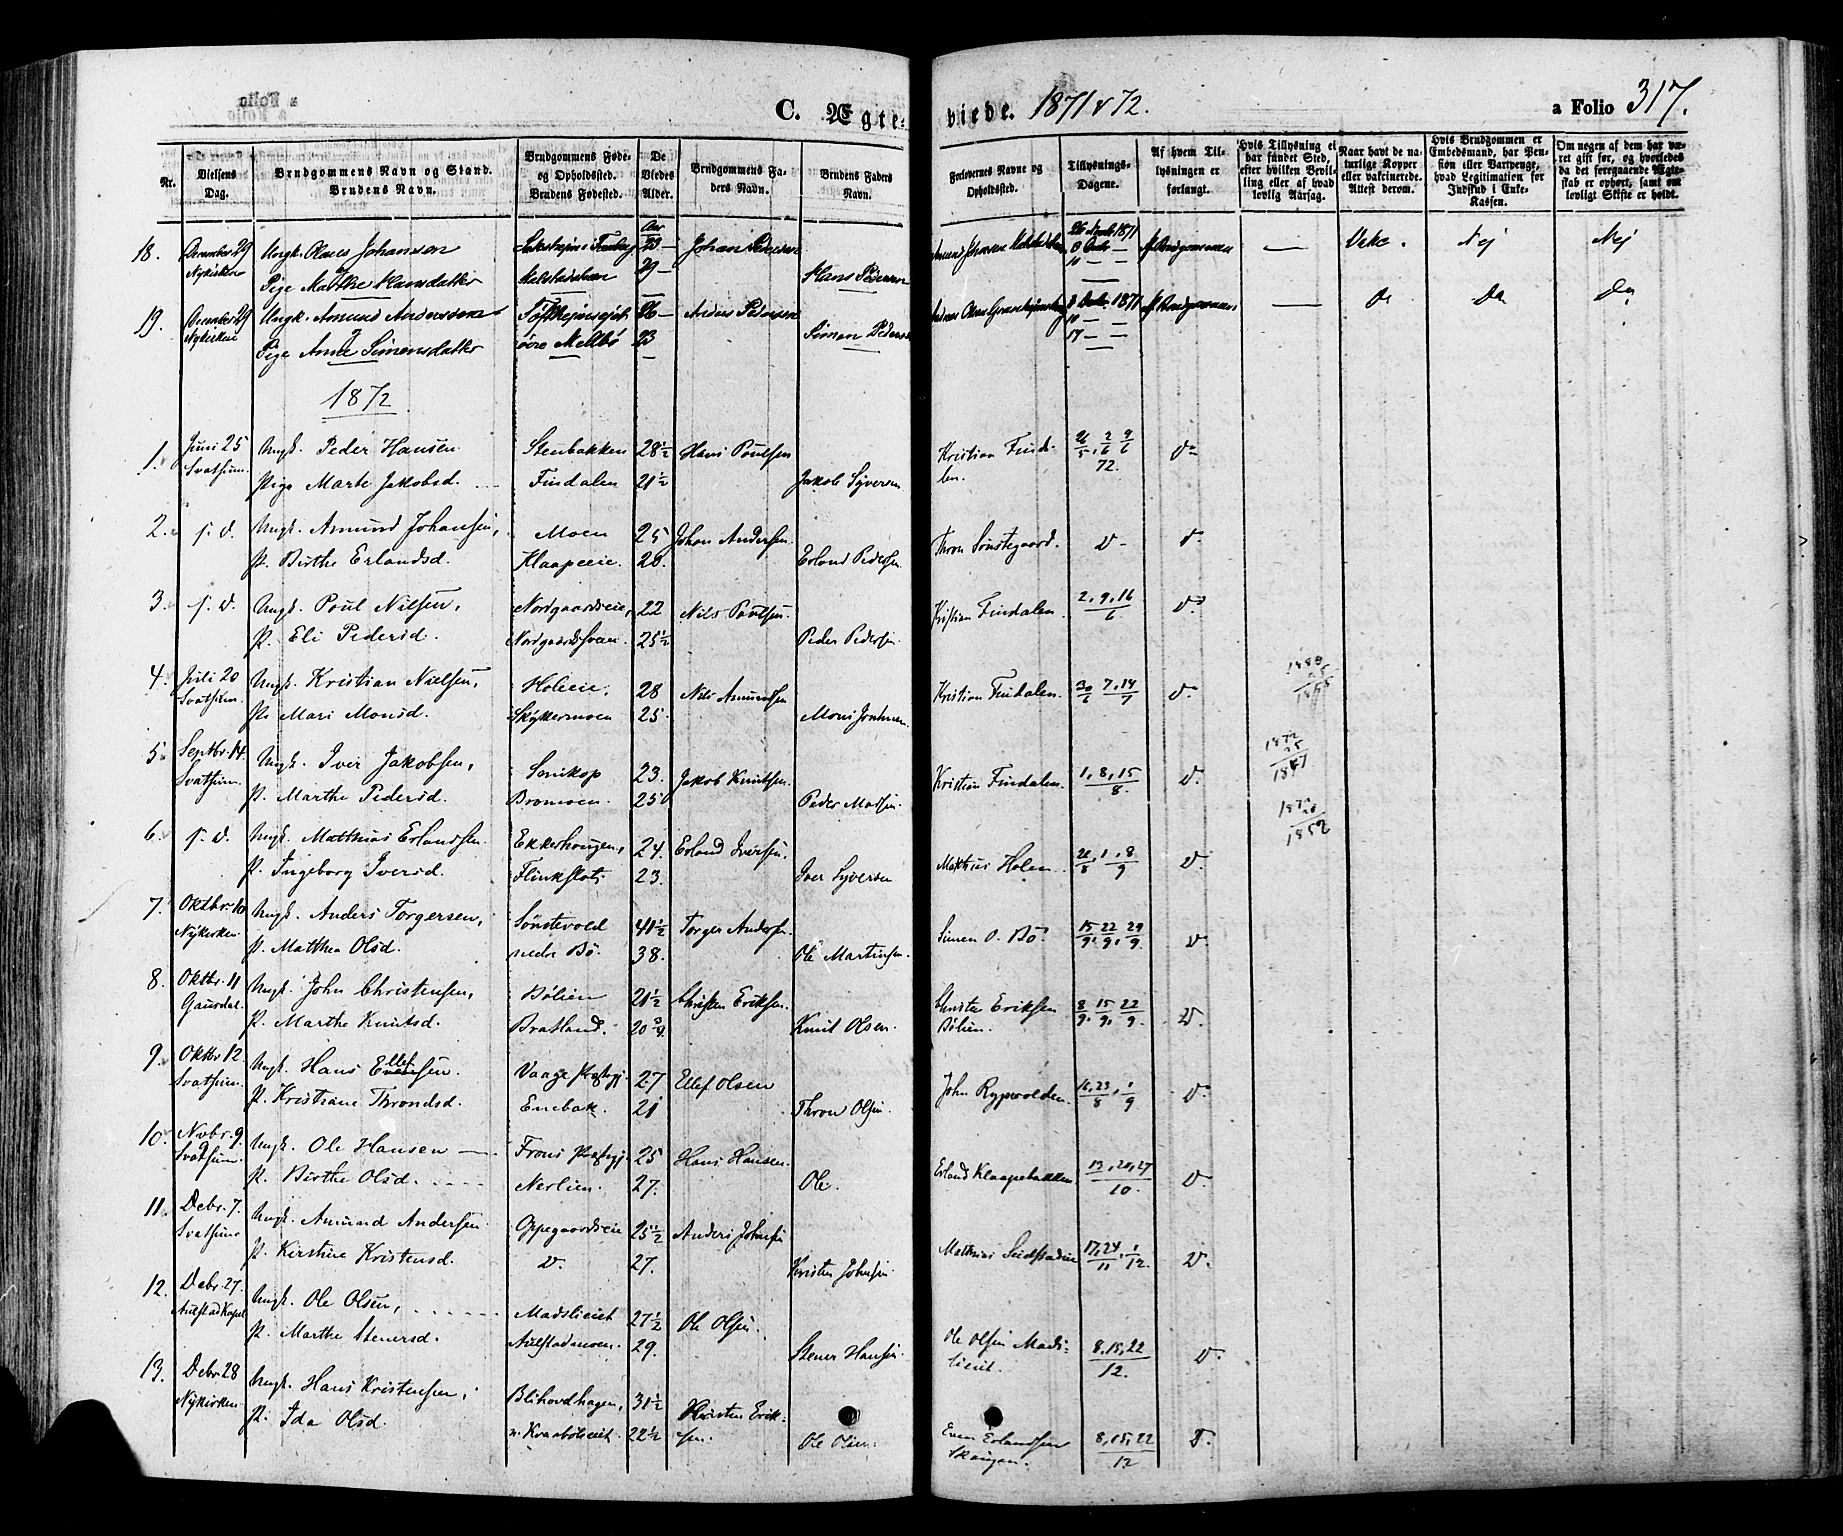 C. Ægteviede. 1871 & 72. a Folio 317.
Nr. Vielsens Dag. Brudgommens Navn og Stand. Brudens Navn. Brudgommens Føde- og Opholdssted. Brudens Fødested. De Viedes Alder. Brudgommens Faders Navn. Brudens Faders Navn. Forlovernes Navne og Opholdssted. Tillysnings-Dagene. Af hvem Tillysningen er forlangt. Hvis Tillysning ei har fundet Sted, efter hvilken Bevilling eller af hvad lovlig Aarsag. Naar havt de naturlige Kopper eller vakcinerede. Attest derom. Hvis Brudgommen er Embedsmand, har Pension eller Vartpenge, hvad Legitimation for Indskud i Enke-Kassen. Om nogen af dem har været gift før, og hvorledes da det foregaaende Ægteskab er ophørt, samt om lovligt Skifte er holdt.
18. December 29 Ungk. Johansen 29 Johan Pedersen 1871 — Vakc. Nej Nej
Nykirken Pige Marthe Hansdatter 29 — Hans Pedersen
19. December 29 Ungk. Amund Andersen 26 — Anders Pedersen 1871 — Do Do Do
Nykirken Pige Anne Simensdatter øvre Mellbø 23 Simen Pedersen 17 —
1872
1. Juni 25 Ungk. Peder Hansen Stenbakken 28½ Hans Poulsen Kristian Findalen. 26/5, 2/6 9/6 72. Do
Svatsum. Pige Marte Jakobsd. Findalen 21½ Jakob Syversen
2. s. d. Ungk. Amund Johansen, Moen 25 Johan Andersen. Thron Sønstegaard. D — D
P. Birthe Erlandsd. Klaapeeie. 28. Erland Pedersen
3. s. d. Ungk. Poul Nilsen, Nordgaardseie, 22 Nils Poulsen. Kristian Findalen 2, 9, 16/6 D.
P. Eli Pedersd. Nordgaardssveen. 25½ Peder Pedersen
4. Juli 20 Ungk. Kristian Nielsen, Holeeie, 28 Nils Amundsen Kristian Findalen. 30/6 7, 14/7 D.
Svatsum. P. Mari Monsd. Skykkermoen 25.
5. Septbr. 14. Ungk. Iver Jakobsen, 23. Jakob Knutsen. Kristian Findalen. 1, 8, 15/8. D. 1872 25 1847
Svatsum. P. Marthe Pedersd. Bromoen. 25 Peder Madsen.
6. s. d. Ungk. Matthias Erlandsen Ekkerhougen, 24. Erland Iversen. Matthias Holen. 1, 8/9 D. 1872 20 1852
P. Ingeborg Iversd. Flinkslot. 23. Iver Syversen
7. Oktbr. 10 Ungk. Anders Torgersen, Sønstevold 41½ Torger Andersen. Simen O. Bø. 15/9, 22/9, 29/9. D.
Nykirken. P. Matthea Olsd. nedre Bø. 38. Ole Martinsen.
8. Oktbr. 11 Ungk. John Christensen, Bølien 21½ Christen Eriksen. Christen Eriksen Bølien. 8/9. 15/9, 22/9. D.
Gausdal. P. Marthe Knutsd. Bratland. 20¾. Knut Olsen.
9. Oktbr 12. Ungk. Hans Ellefsen. Vaage Præstgj. 27 Ellef Olsen John Rypvolden. 16, 23/8, 1/9 D.
Svatsum. P. Kristiane Throndsd. Enebak. 21 Thron Olsen.
10. Novbr. 9. Ungk. Ole Hansen — Frons Præstgj. 25 Hans Hansen. Erland Klaapebakken 13, 20, 27/10. D.
Svatsum. P. Birthe Olsd. Nerlien. 27. Ole.
11. Debr. 7. Ungk. Amund Andersen. Oppegaardseie 25½ Anders Johnsen Matthias 17, 24/11, 1/12. D.
Svatsum P. Kirstine Kristensd. D. 27. Kristen Johnsen.
12. Debr. 27. Ungk. Ole Olsen, Madslieiet 27½ Ole Olsen. Ole Olsen Madslieiet. 8, 15, 22/12. D.
Aulstad Kapel P. Marthe Stenersd. Aulstadmoen. 29. Stener Hansen.
13. Debr. 28 Ungk. Hans Kristensen, Blihovdhagen, 31½ Kristen Eriksen. Even Erlandsen 8, 15, 22/12 D.
Nykirken P. Ida Olsd. n. Kraabølieiet 22½ Ole Olsen.